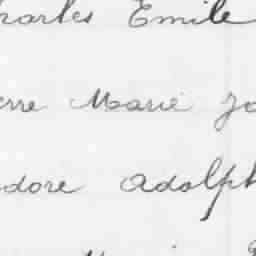 harles Emile
erre Marie Jo
dore Adolph